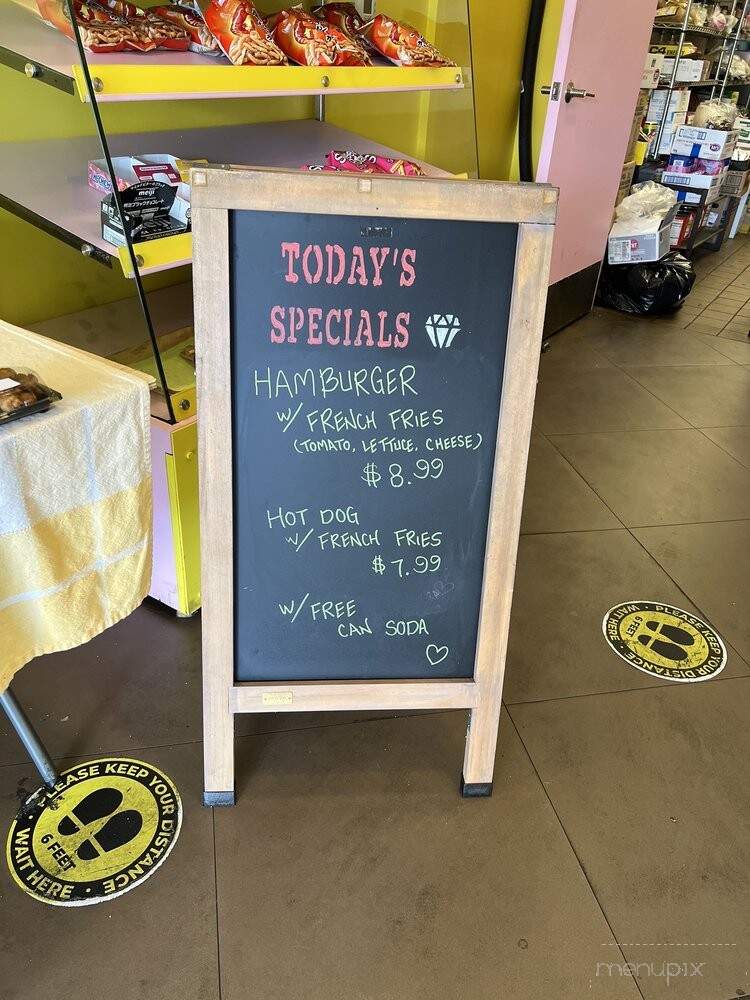 TODAY'S
SPECIALS
HAMBURGER
W/ FRENCH FRIES
(TOMATO, LETTUCE, CHEESE)
$8.99
HOT DOG
W/ FRENCH FRIES
$7.99
W/ FREE
CAN SODA
meiji
PLEASE KEEP YOUR DISTANCE
6 FEET
WAIT HERE
PLEASE KEEP YOUR DISTANCE
6 FEET
WAIT HERE
menupix